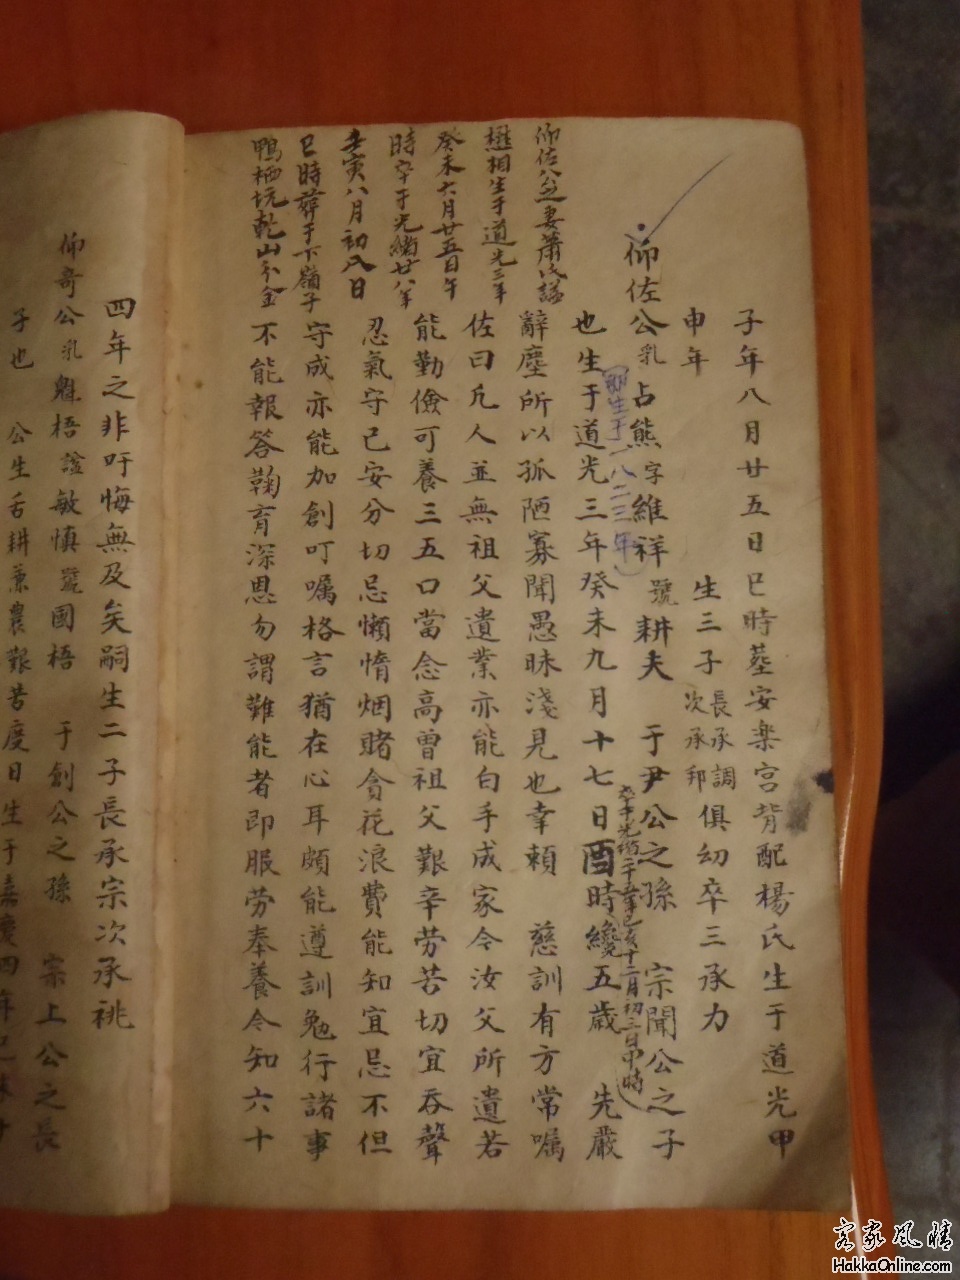 子年八月廿五日巳時塟安樂宮背配楊氏生于道光甲
申年
生三子
長承調
次承邦
俱幼卒三承力
仰佐公乳占熊字維祥號耕夫 于尹公之孫 宗聞公之子
(即生于一八二三年)
也生于道光三年癸未九月十七日酉時纔五歲 先嚴
卒于光緒二十
十二月初三日申時
辭塵所以孤陋寡聞愚昧淺見也幸賴 慈訓有方常囑
佐曰凡人並無祖父遺業亦能白手成家令汝父所遺若
能勤儉可養三五口當念高曾祖父艱辛勞苦切宜吞聲
忍氣守己安分切忌懶惰烟賭貪花浪費能知宜忌不但
守成亦能加創叮囑格言猶在心耳頗能遵訓勉行諸事
不能報答鞠育深恩勿謂難能者即服劳奉養今知六十
仰佐公妻蕭氏謚
懋相生于道光三年
癸未六月廿五日午
時卒于光緒廿八年
壬寅八月初八日
巳時葬于下嶺子
鴨栖坑乾山分金
四年之非吁悔無及矣嗣生二子長承宗次承祧
仰奇公乳魁梧謚敏慎號國梧 于創公之孫 宗上公之長
子也 公生舌耕兼農艱苦度日生于嘉慶四年己未十
客家風情
HakkaOnline.com